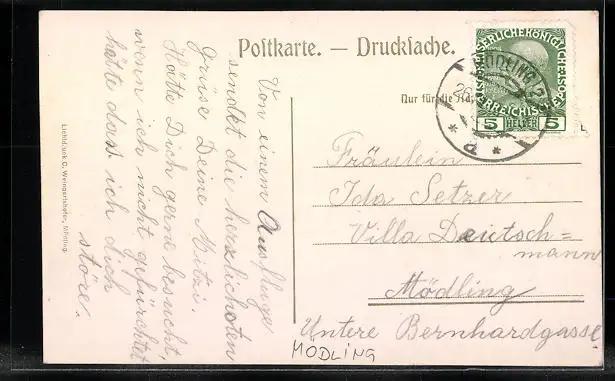 Postkarte. — Drucksache.
Nur für die
KAISERLICHE KÖNIGLICHE
ÖSTERREICHISCHE
5 HELLER 5
MÖDLING 2
26
* P *
Von einem Ausfluge
sendet die herzlichsten
Grüsse Deine Mitzi.
Hätte Dich gerne besucht,
wenn ich nicht gefürchtet
hätte dass ich dich
störe.
Fräulein
Ida Setzer
Villa Deutsch=
mann
Mödling
Untere Bernhardgasse.
MÖDLING
Lichtdruck C. Weingartshofer, Mödling.